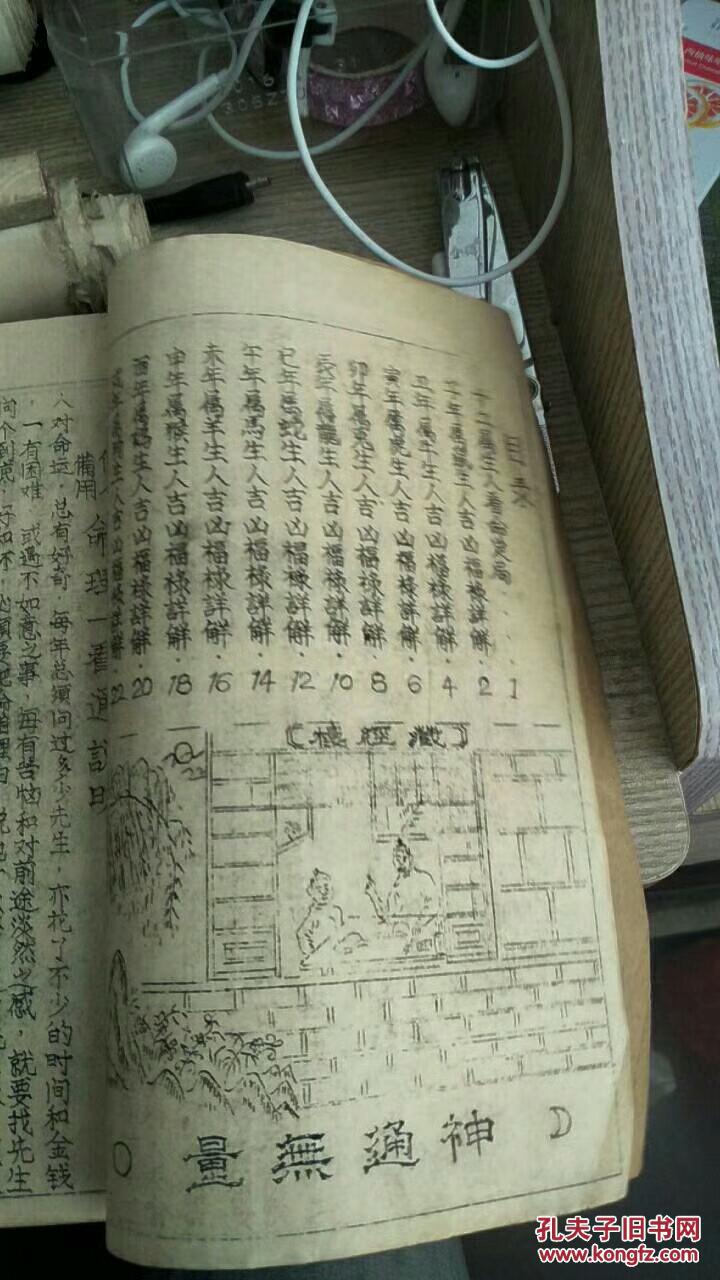 目录
十二属生人看命定局 · · · · 1
子年属鼠生人吉凶福禄詳解 · 2
丑年属牛生人吉凶福禄詳解 · 4
寅年属虎生人吉凶福禄詳解 · 6
卯年属兔生人吉凶福禄詳解 · 8
辰年属龍生人吉凶福禄詳解 · 10
巳年属蛇生人吉凶福禄詳解 · 12
午年属馬生人吉凶福禄詳解 · 14
未年属羊生人吉凶福禄詳解 · 16
申年属猴生人吉凶福禄詳解 · 18
酉年属鸡生人吉凶福禄詳解 · 20
戌年属狗生人吉凶福禄詳解 · 22
(藏經樓)
神通無量
備用
命理一看通説明
人对命运,总有好奇,每年总须问过多少先生,亦花了不少的时间和金钱
,一有困难,或遇不如意之事,每有苦恼和对前途淡然之感,就要找先生
孔夫子旧书网
www.kongfz.com